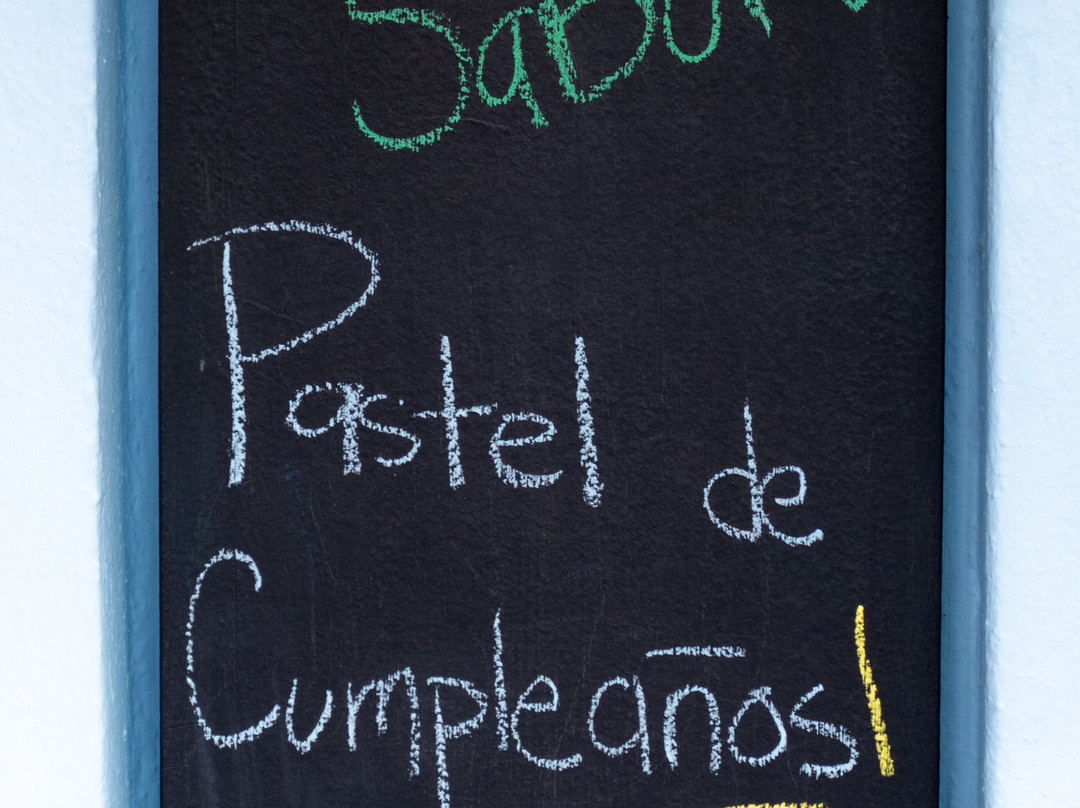 Sabor
Pastel de
Cumpleaños!